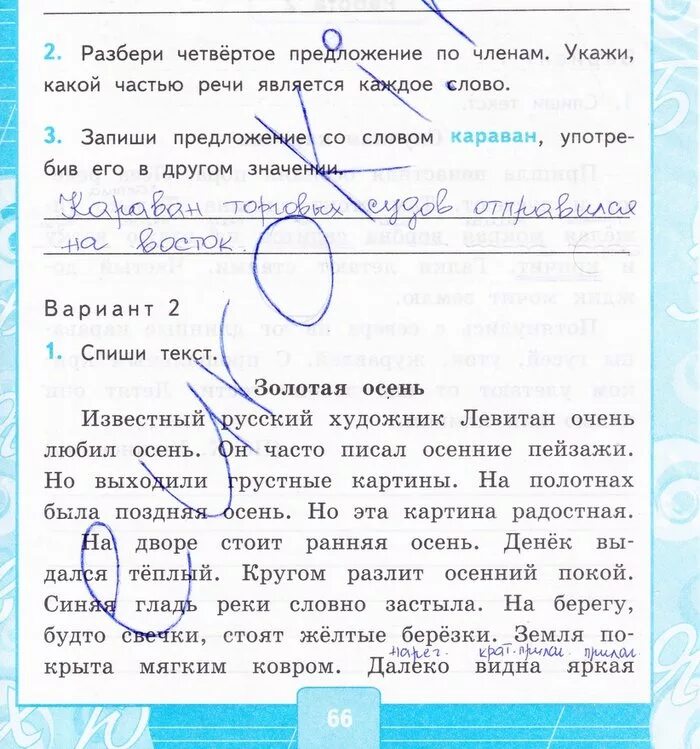 2. Разбери четвёртое предложение по членам. Укажи,
какой частью речи является каждое слово.
3. Запиши предложение со словом караван, употре-
бив его в другом значении.
Караван торговых судов отправился
на восток.
Вариант 2
1. Спиши текст.
Золотая осень
Известный русский художник Левитан очень
любил осень. Он часто писал осенние пейзажи.
Но выходили грустные картины. На полотнах
была поздняя осень. Но эта картина радостная.
На дворе стоит ранняя осень. Денёк вы-
дался тёплый. Кругом разлит осенний покой.
Синяя гладь реки словно застыла. На берегу,
будто свечки, стоят жёлтые берёзки. Земля по-
нареч. крат. прилаг. прилаг.
крыта мягким ковром. Далеко видна яркая
66